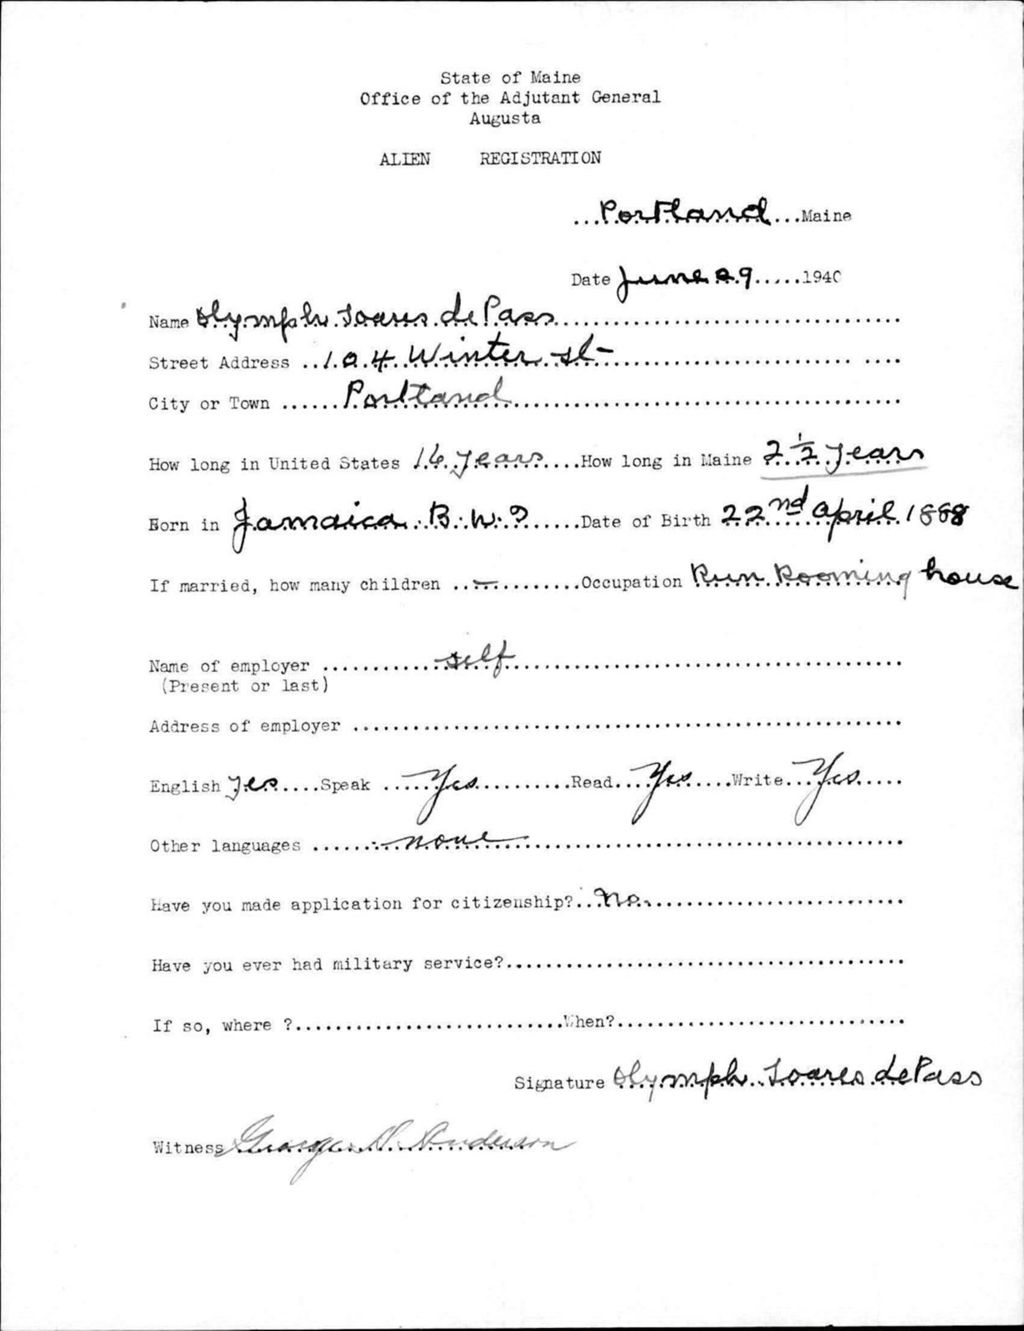 State of Maine
Office of the Adjutant General
Augusta
ALIEN REGISTRATION
...Portland...Maine
Date June 29.....1940
Name Olymph Soares de Pass
Street Address ..104 Winter St
City or Town ......Portland
How long in United States 16 years....How long in Maine 2 1/2 years
Born in Jamaica B.W.I......Date of Birth 22nd April 1888
If married, how many children ..—..........Occupation Run Rooming house
Name of employer ............self
(Present or last)
Address of employer
English Yes....Speak ....Yes..........Read...Yes....Write...Yes....
Other languages .......none
Have you made application for citizenship?..No.
Have you ever had military service?
If so, where ?...........................When?
Signature Olymph Soares de Pass
Witness George Anderson